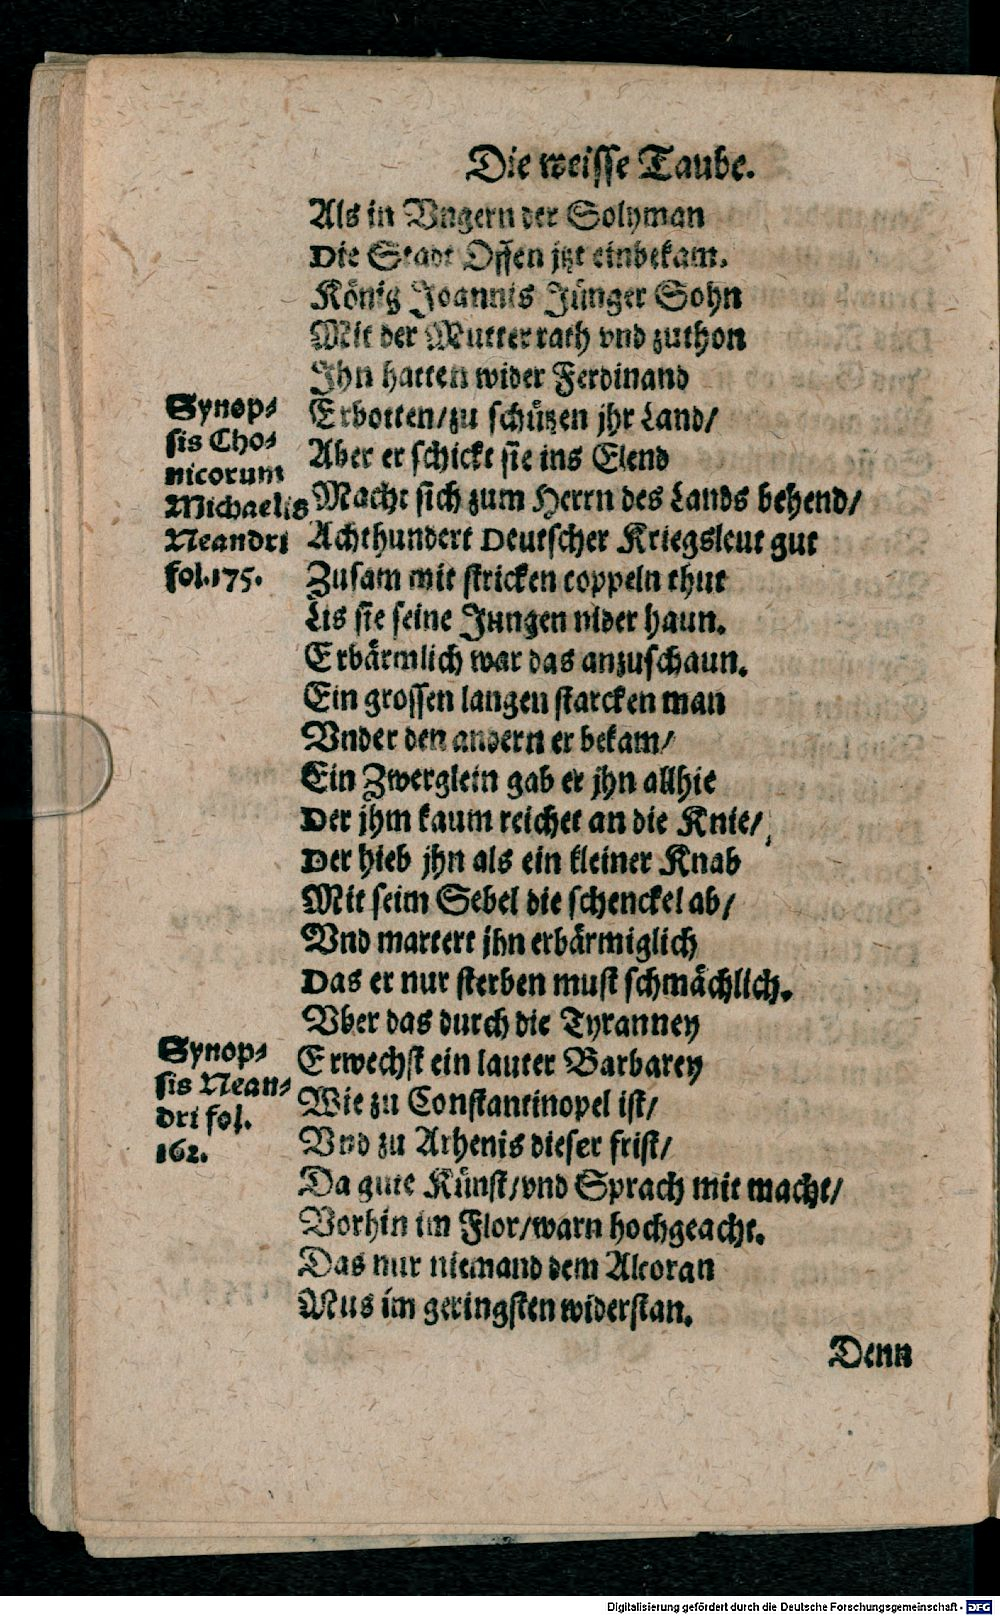 Die weisse Taube.
Als in Vngern der Solyman
Die Stadt Offen jtzt einbekam.
König Joannis Jünger Sohn
Mit der Mutter rath vnd zuthon
Ihn hatten wider Ferdinand
Erbotten/zu schützen jhr Land/
Aber er schickt sie ins Elend
Macht sich zum Herrn des Lands behend/
Achthundert Deutscher Kriegsleut gut
Zusam mit stricken coppeln thut
Lis sie seine Jungen nider haun.
Erbärmlich war das anzuschaun.
Ein grossen langen starcken man
Vnder den andern er bekam/
Ein Zwerglein gab er jhn allhie
Der jhm kaum reichet an die Knie/
Der hieb jhn als ein kleiner Knab
Mit seim Sebel die schenckel ab/
Vnd martert jhn erbärmiglich
Das er nur sterben must schmächlich.
Vber das durch die Tyranney
Erwechst ein lauter Barbarey
Wie zu Constantinopel ist/
Vnd zu Athenis dieser frist/
Da gute Künst/vnd Sprach mit macht/
Vorhin im Flor/warn hochgeacht.
Das nur niemand dem Alcoran
Mus im geringsten widerstan.
Denn
Synop-
sis Cho-
nicorum
Michaelis
Neandri
fol.175.
Synop-
sis Nean-
dri fol.
162.
Digitalisierung gefördert durch die Deutsche Forschungsgemeinschaft - DFG